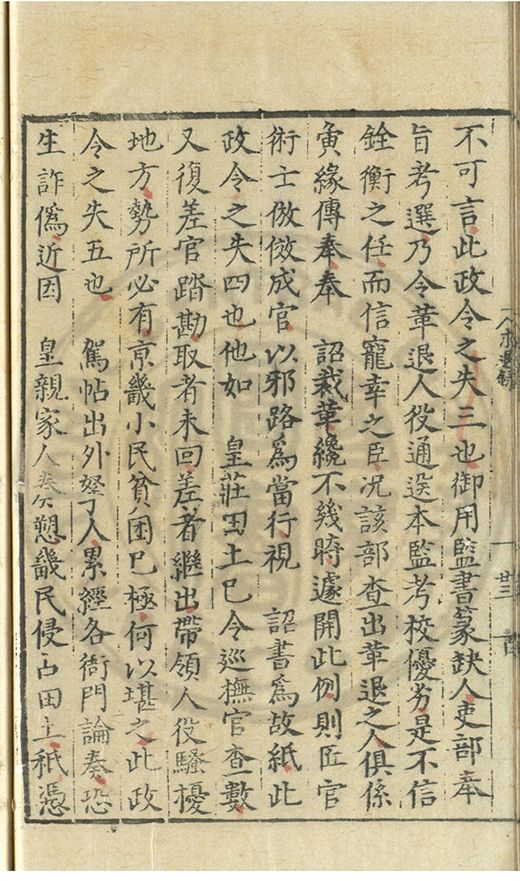 不可言此政令之失三也御用監書篆缺人吏部奉
旨考選乃令革退人役通送本監考校優劣是不信
銓衡之任而信寵幸之臣况該部查出革退之人俱係
寅緣傳奉奉 詔裁革纔不幾時遽開此例則匠官
術士倣傚成官以邪路爲當行視 詔書爲故紙此
政令之失四也他如 皇莊田土已令巡撫官查數
又復差官踏勘取者未回差者繼出帶領人役騷擾
地方勢所必有京畿小民貧困已極何以堪之此政
令之失五也 駕帖出外拏人累經各衙門論奏恐
生詐僞近因 皇親家人奏愬畿民侵占田土秖憑
廿三